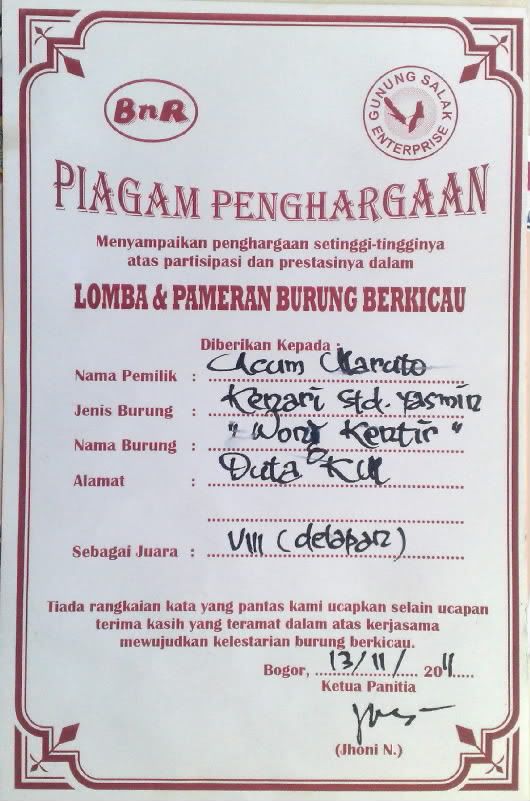 BnR
GUNUNG SALAK ENTERPRISE
PIAGAM PENGHARGAAN
Menyampaikan penghargaan setinggi-tingginya
atas partisipasi dan prestasinya dalam
LOMBA & PAMERAN BURUNG BERKICAU
Diberikan Kepada :
Nama Pemilik : Acum Naruto
Jenis Burung : Kenari Std. Yasmin
Nama Burung : "Wong Kentir"
Alamat : Duta KUL
Sebagai Juara : VIII (delapan)
Tiada rangkaian kata yang pantas kami ucapkan selain ucapan
terima kasih yang teramat dalam atas kerjasama
mewujudkan kelestarian burung berkicau.
Bogor, 13/11/ 2011
Ketua Panitia
(Jhoni N.)